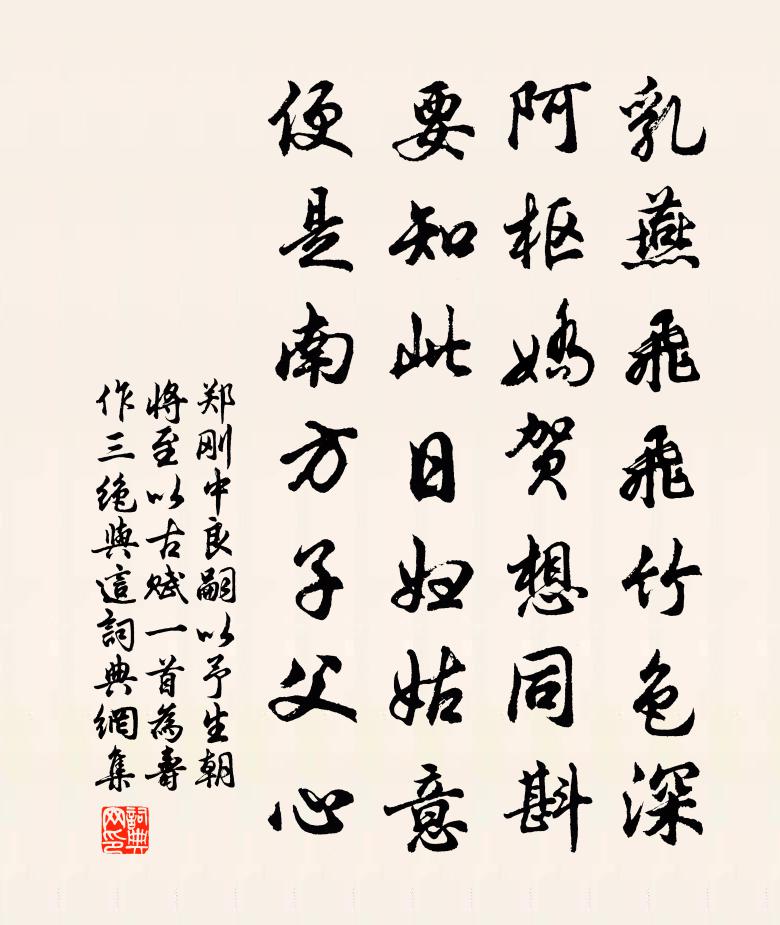 乳燕飛飛竹色深
阿枢嬌贺想同斟
要知此日妇姑意
便是南方子父心
郑刚中良嗣以予生朝
将至以古赋一首為壽
作三绝與這詞典網集
詞典网印